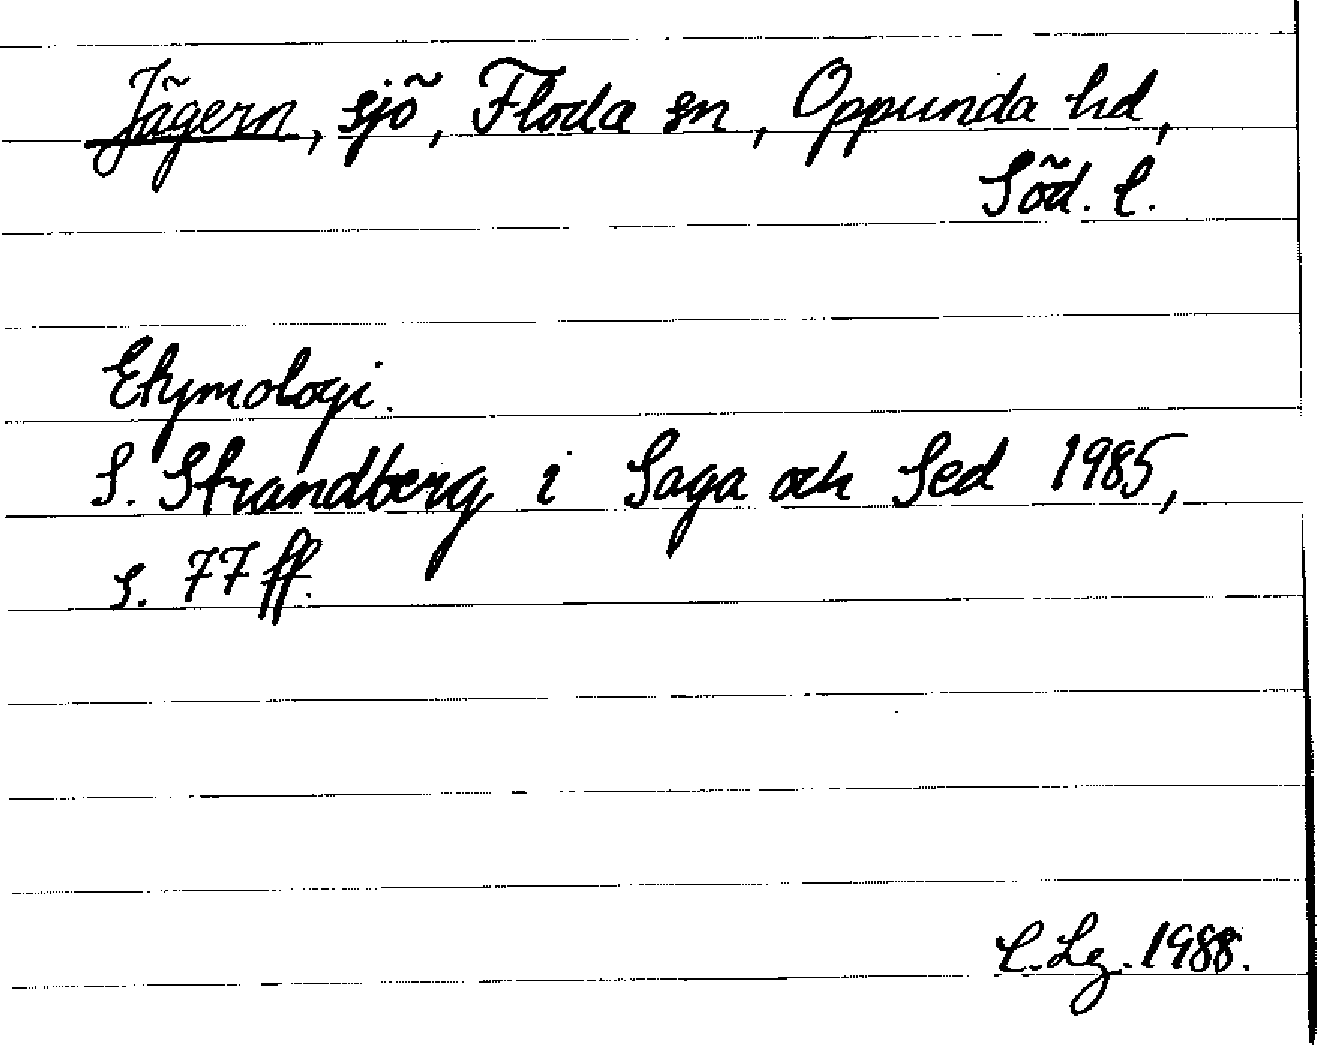 Jägern, sjö, Floda sn, Oppunda hd,
Söd. l.
Etymologi.
S. Strandberg i Saga och Sed 1985,
s. 77 ff.
L. Lg. 1988.